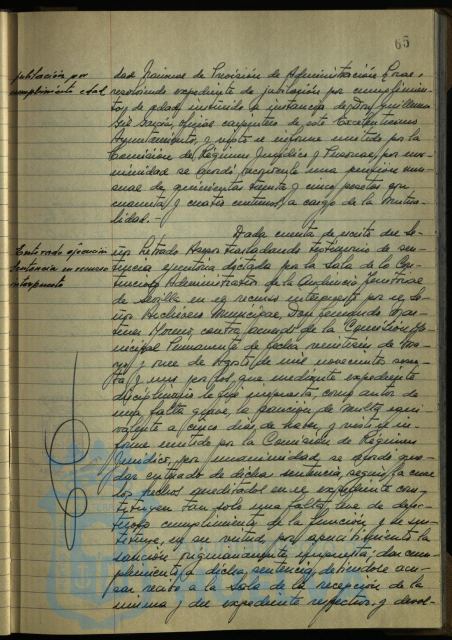 65
jubilación por
cumplimiento edad
dad Nacional de Previsión de Administración Local,
resolviendo expediente de jubilación por cumplimien-
to de edad, instruido a instancia de Don Guillermo
Gil García, oficial carpintero de este Excelentísimo
Ayuntamiento, y visto el informe emitido por la
Comisión de Régimen Jurídico y Personal, por una-
nimidad se acordó reconocerle una pensión men-
sual de quinientas setenta y cinco pesetas con
cuarenta y cuatro céntimos, a cargo de la Mutua-
lidad.-
Enterado ejecución
Sentencia en recurso
interpuesto
Dada cuenta de escrito del Se-
ñor Letrado Asesor trasladando testimonio de sen-
tencia ejecutoria dictada por la Sala de lo Con-
tencioso Administrativo de la Audiencia Territorial
de Sevilla en el recurso interpuesto por el Se-
ñor Archivero Municipal, Don Fernando
contra acuerdo de la Comisión Mu-
nicipal Permanente de fecha veintiséis de Ma-
yo y once de Agosto de mil novecientos sesen-
ta y uno por los que mediante expediente
disciplinario le fue impuesta, como autor de
una falta grave, la sanción de multa equi-
valente a cinco días de haber, y visto el in-
forme emitido por la Comisión de Régimen
Jurídico, por unanimidad se acordó que-
dar enterado de dicha sentencia, según la cual
los hechos acreditados en el expediente cons-
tituyen tan solo una falta leve de defec-
tuoso cumplimiento de la función y le sus-
tituye, en su virtud, por apercibimiento la
sanción primeramente impuesta; dar cum-
plimiento a dicha sentencia, debiéndose acu-
sar recibo a la Sala de la recepción de la
misma y del expediente respectivo, y devol-